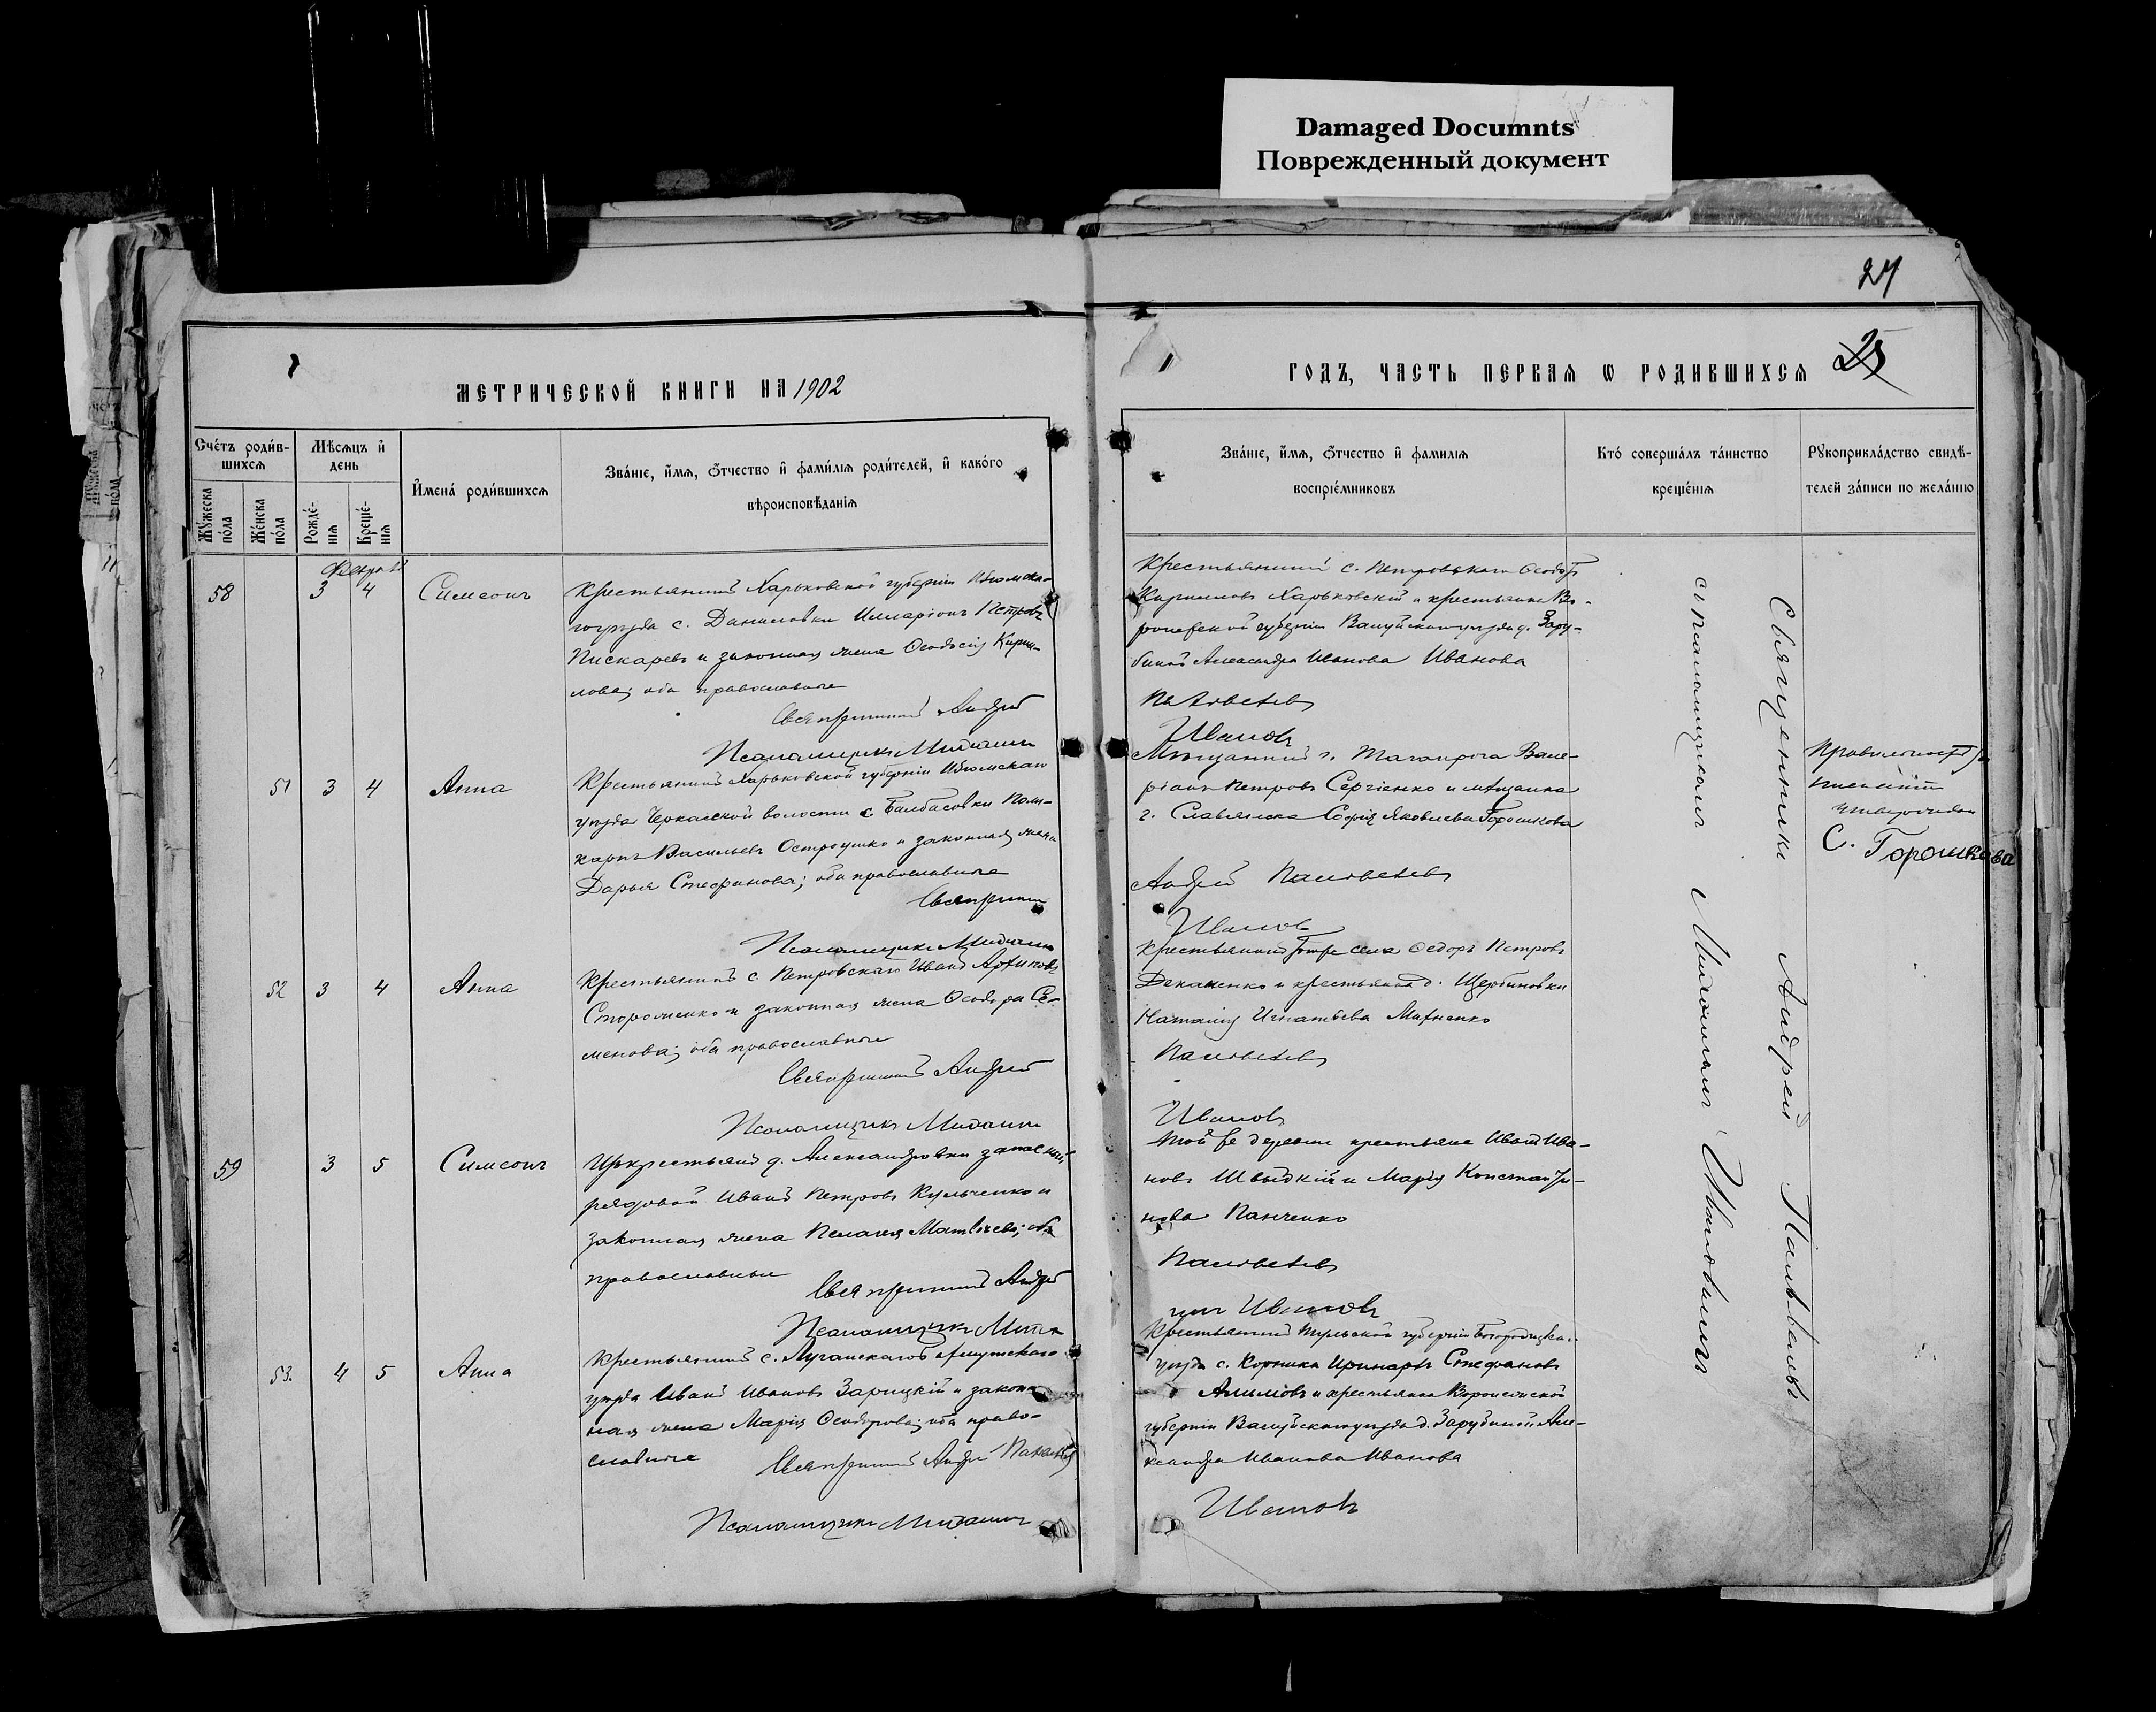 Damaged Documnts
Поврежденный документ
24
25
МЕТРИЧЕСКОЙ КНИГИ НА 1902
ГОДЪ, ЧАСТЬ ПЕРВАЯ Ѡ РОДИВШИХСЯ
Счетъ родив-
шихся
Мужеска пола
Женска пола
Мѣсяцъ и
день
Рожде-
нія
Креще-
нія
Имена родившихся
Званіе, имя, отчество и фамилія родителей, и какого
вѣроисповѣданія
Званіе, имя, отчество и фамилія
воспріемниковъ
Кто совершалъ таинство
крещенія
Рукоприкладство свидѣ-
телей записи по желанію
58
3 4
Симеонъ
Крестьянинъ Харьковской губерніи Изюмска-
го уѣзда с. Даниловки Илларіонъ Петровъ
Пискаревъ и законная жена Ѳеодосія Кирил-
лова; оба православные
Священникъ Андрей
Псаломщикъ Михаилъ
Крестьянинъ с. Петровскаго
Кирилловъ Харьковскій и крестьянка Во-
ронежской губерніи Валуйскаго уѣзда д. Зару-
биной Александра Иванова Иванова
Ивановъ
51 3 4
Анна
Крестьянинъ Харьковской губерніи Изюмскаго
уѣзда Черкасской волости с. Балбасовки Поли-
карпъ Васильевъ Остроушко и законная жена
Дарья Стефанова; оба православные
Священникъ
Псаломщикъ Михаилъ
Мѣщанинъ г. Таганрога Вале-
ріанъ Петровъ Сергіенко и мѣщанка
г. Славянска Софія Яковлева Горошкова
Андрей
Ивановъ
С. Горошкова
52 3 4
Анна
Крестьянинъ с. Петровскаго Иванъ
Стороженко и законная жена Ѳеодора Се-
менова; оба православные
Священникъ Андрей
Псаломщикъ Михаилъ
Крестьянинъ того же села Ѳедоръ Петровъ
Деканенко и крестьянка д. Щербиновки
Наталія Игнатьева Михненко
Ивановъ
59 3 5
Симеонъ
Изъ крестьянъ д. Александровки запасный
рядовой Иванъ Петровъ Кульченко и
законная жена Пелагея Матвѣева; оба
православные
Священникъ Андрей
Псаломщикъ
Той же деревни крестьяне Иванъ Ива-
новъ Швыдкій и Марія Константи-
нова Панченко
Ивановъ
53. 4 5
Анна
Крестьянинъ с. Луганскаго Бахмутскаго
уѣзда Иванъ Ивановъ Зарицкій и закон-
ная жена Марія Ѳеодорова; оба право-
славные
Священникъ Андрей
Псаломщикъ Михаилъ
Крестьянинъ Тульской губерніи Богородицка-
уѣзда с. Корника Иринархъ Стефановъ
Алымовъ и крестьянка Воронежской
губерніи Валуйскаго уѣзда д. Зарубиной Але-
ксандра Иванова Иванова
Ивановъ
Священникъ Андрей
съ псаломщикомъ Михаиломъ Ивановымъ